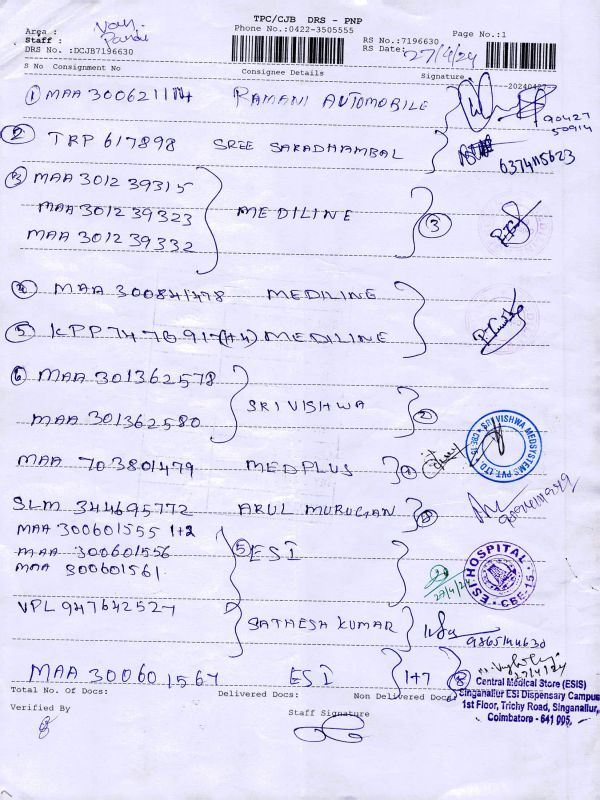 TPC/CJB DRS - PNP
Area :
Phone No.:0422-3505555
Staff :
RS No.:7196630
Page No.:1
DRS No. :DCJB7196630
RS Date: 27/4/24
S No Consignment No Consignee Details Signature 20240427
① MAA 300621114 RAMANI AUTOMOBILE
90427
50914
② TRP 617898 SREE SARADHAMBAL
6374115623
③ MAA 301239315
MAA 301239323 MEDILINE ③
MAA 301239332
④ MAA 300841478 MEDILINE
⑤ KPP 7476917(+4) MEDILINE
⑥ MAA 301362578
SRI VISHWA ②
MAA 301362580
SRI VISHWA MEDSYSTEMS PVT LTD CBE-10
MAA 703801479 MEDPLUS ①
SLM 344695772 ARUL MURUGAN
MAA 300601555 1+2
MAA 300601556 ⑤ ESI
MAA 300601561
ESI HOSPITAL CBE-15
27/4/24
VPL 947642527 SATHESH KUMAR
9865144630
MAA 300601567 ESI 1+7 ⑧
27/4/24
Central Medical Store (ESIS)
Singanallur ESI Dispensary Campus
1st Floor, Trichy Road, Singanallur,
Coimbatore - 641 005.
Total No. Of Docs: Delivered Docs: Non Delivered Docs:
Verified By Staff Signature